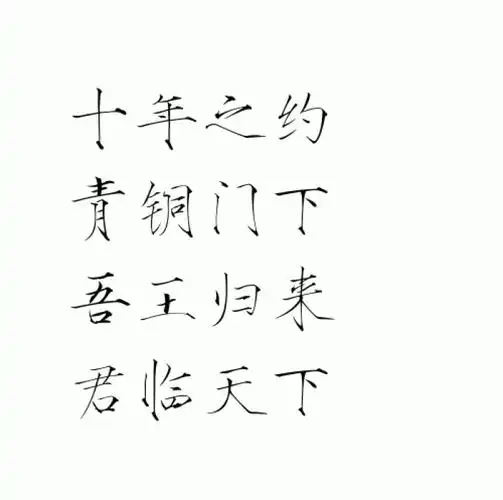 十年之约
青铜门下
吾王归来
君临天下